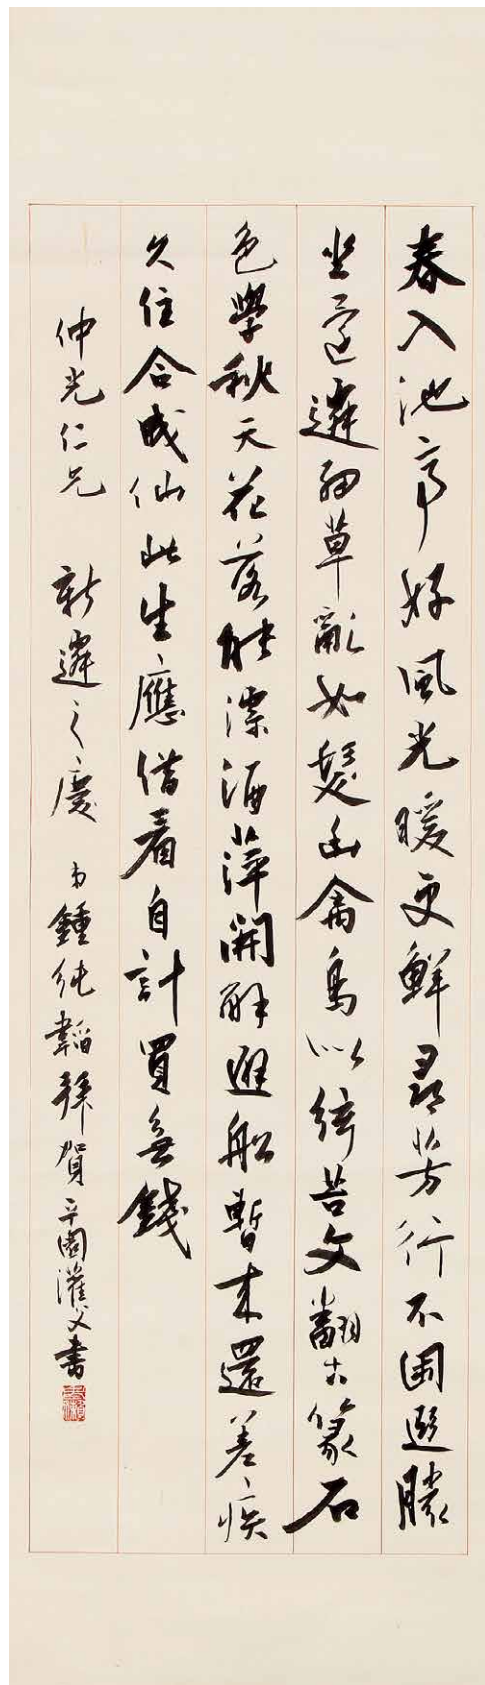 春入池亭好風光暖更鮮尋芳行不困逐勝
坐還遷細草亂如髮幽禽鳥似絃苔文翻古篆石
色學秋天花落能漂酒萍開解避船暫來還差疾
久住合成仙此生應借看自計買無錢
仲光仁兄 新遷之慶 弟鍾純韜拜賀 辛園灌父書